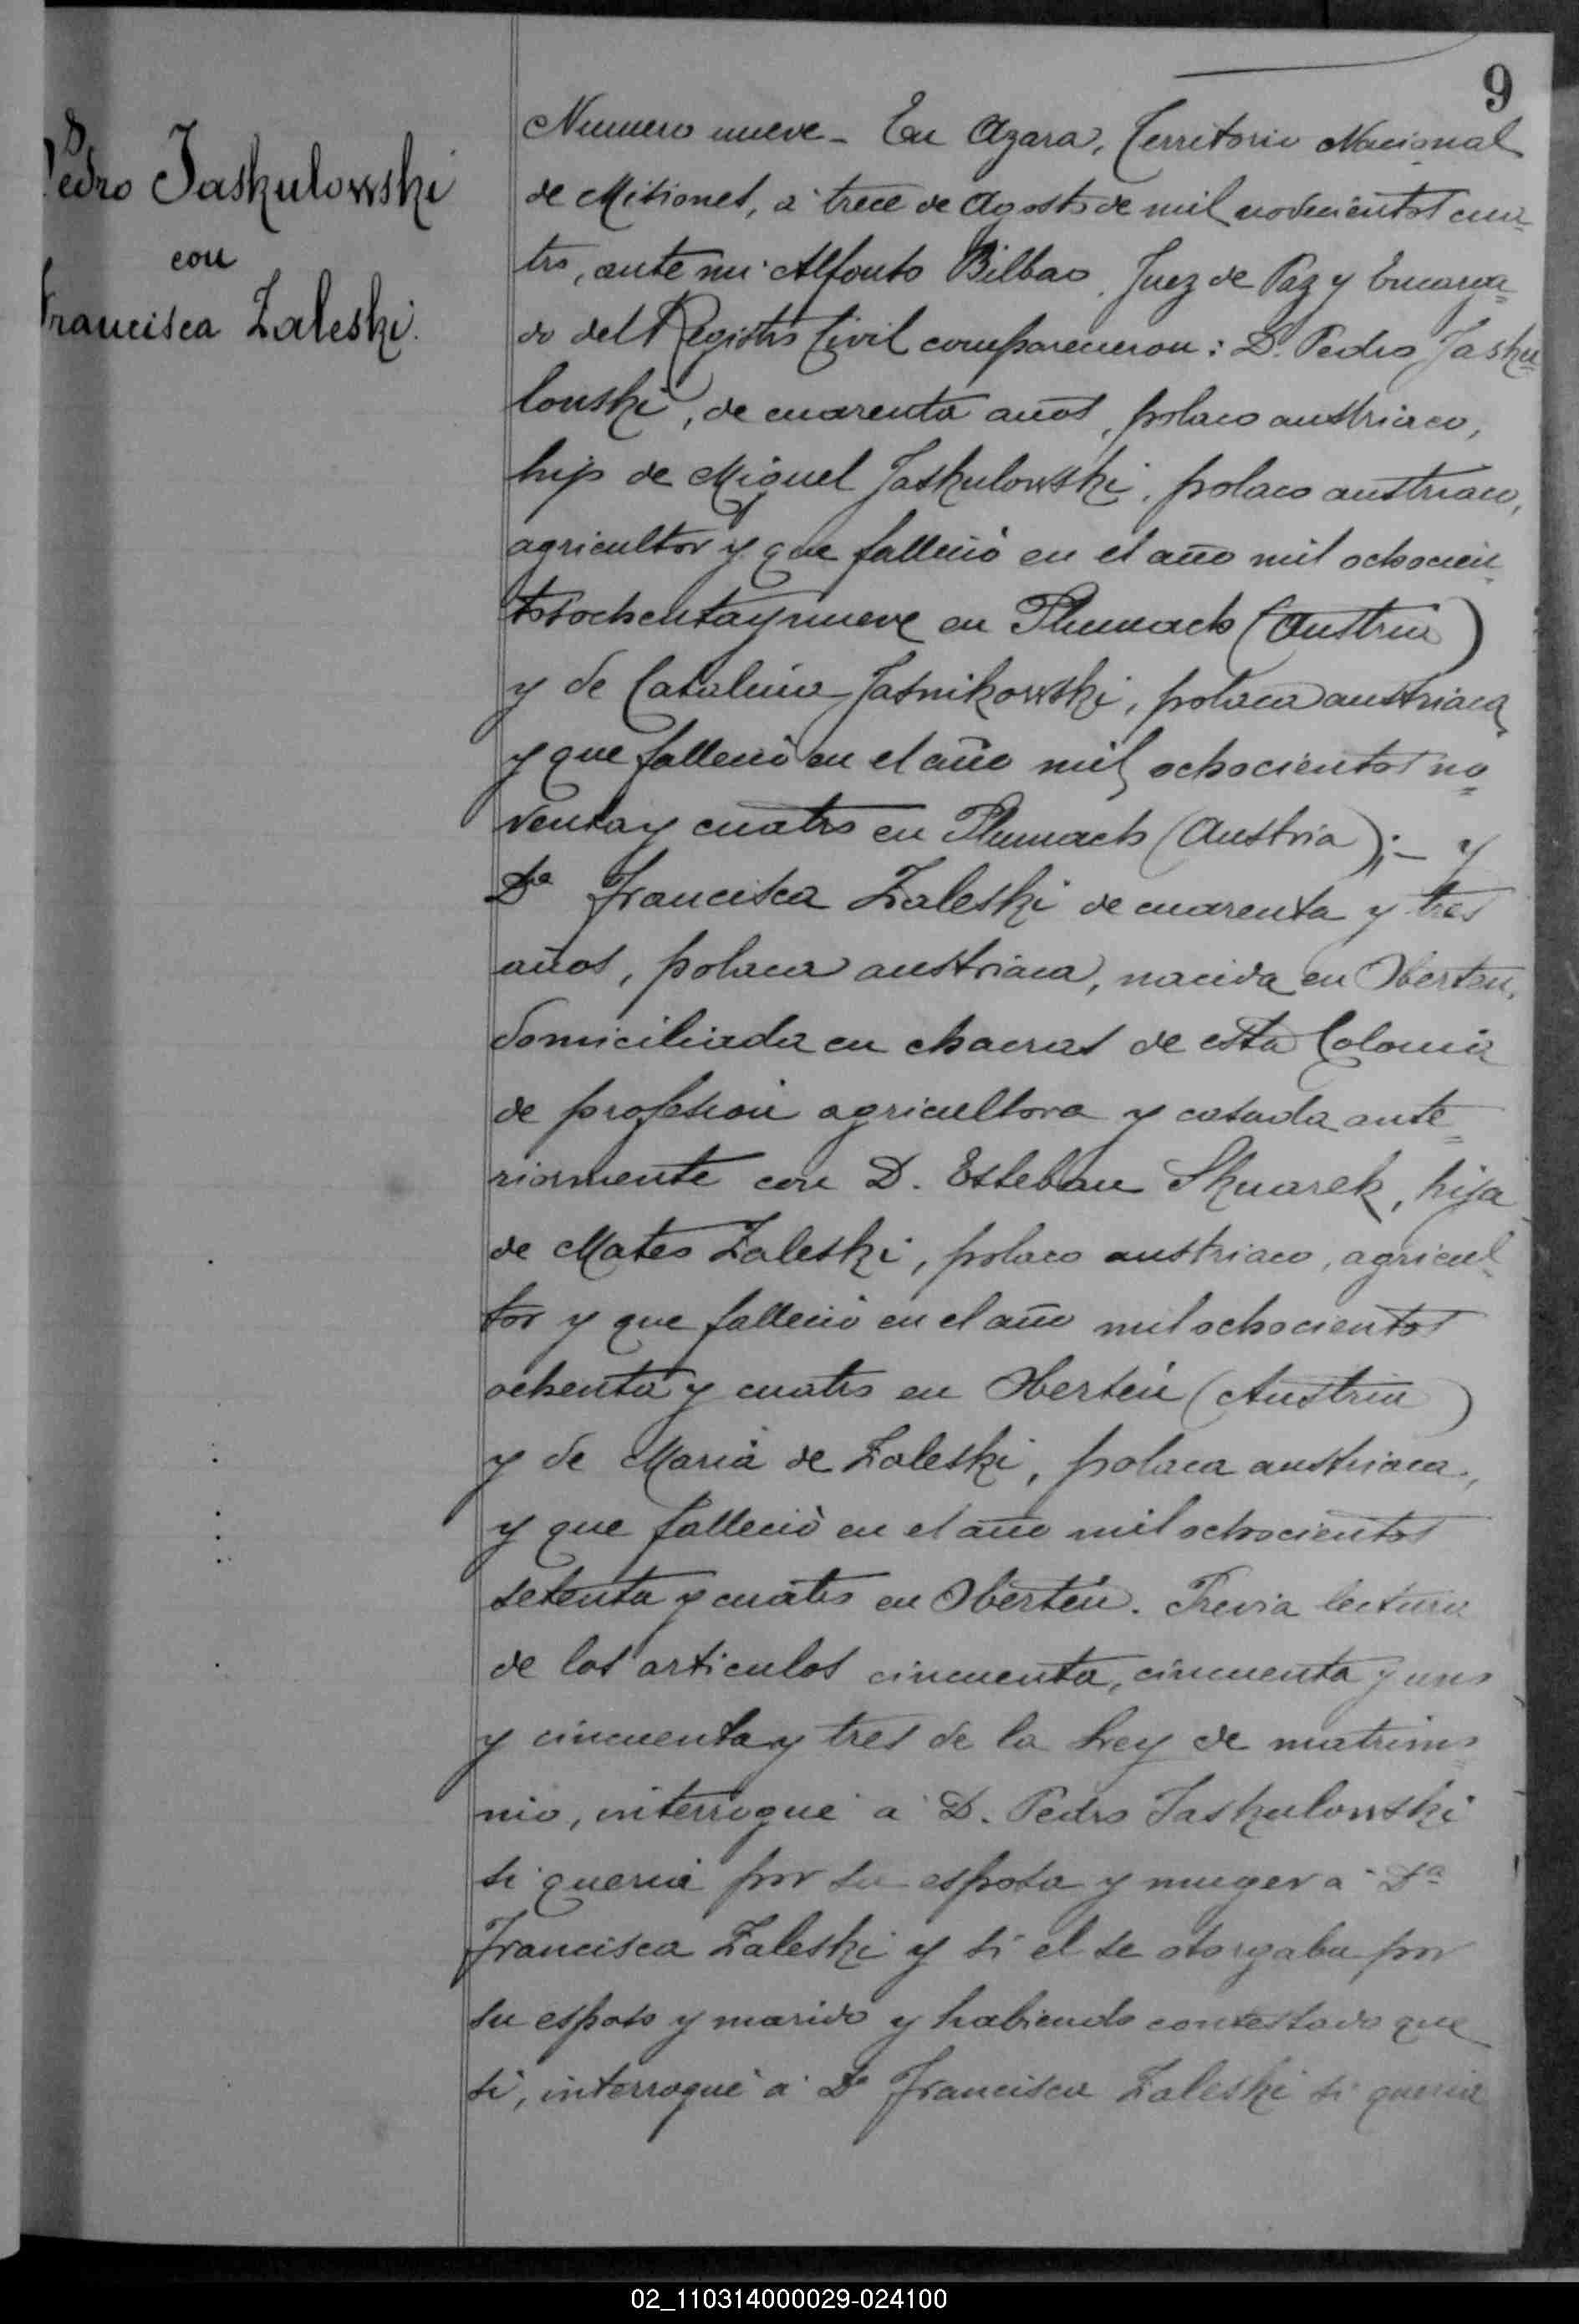 9
8
Pedro Jaskulowski
con
Francisca Zaleski.
Numero nueve - En Azara, Territorio Nacional
de Misiones, à trece de Agosto de mil novecientos cua=
tro, ante mi Alfonso Bilbao, Juez de Paz y Encarga=
do del Registro Civil comparecieron: D. Pedro Jasku=
louski, de cuarenta años, polaco austriaco,
hijo de Miguel Jaskulowski, polaco austriaco,
agricultor y que falleció en el año mil ochocien=
tos ochenta y nueve en Thumach (Austria)
y de Catalina Jasnikowski, polaca austriaca
y que falleció en el año mil ochocientos no=
venta y cuatro en Thumach (Austria); - y
Da Francisca Zaleski de cuarenta y tres
años, polaca austriaca, nacida en Oberten,
domiciliada en chacras de esta Colonia
de profesion agricultora y casada ante=
riormente con D. Esteban Skuarek, hija
de Mateo Zaleski, polaco austriaco, agricul=
tor y que falleció en el año mil ochocientos
ochenta y cuatro en Oberten (Austria)
y de Maria de Zaleski, polaca austriaca,
y que falleció en el año mil ochocientos
setenta y cuatro en Oberten. Previa lectura
de los articulos cincuenta, cincuenta y uno
y cincuenta y tres de la Ley de matrimo=
nio, interrogué a D. Pedro Jaskulowski
si queria por su esposa y muger a Da
Francisca Zaleski y si el se otorgaba por
su esposo y marido y habiendo contestado que
si, interrogué a Da Francisca Zaleski si queria
02_110314000029-024100